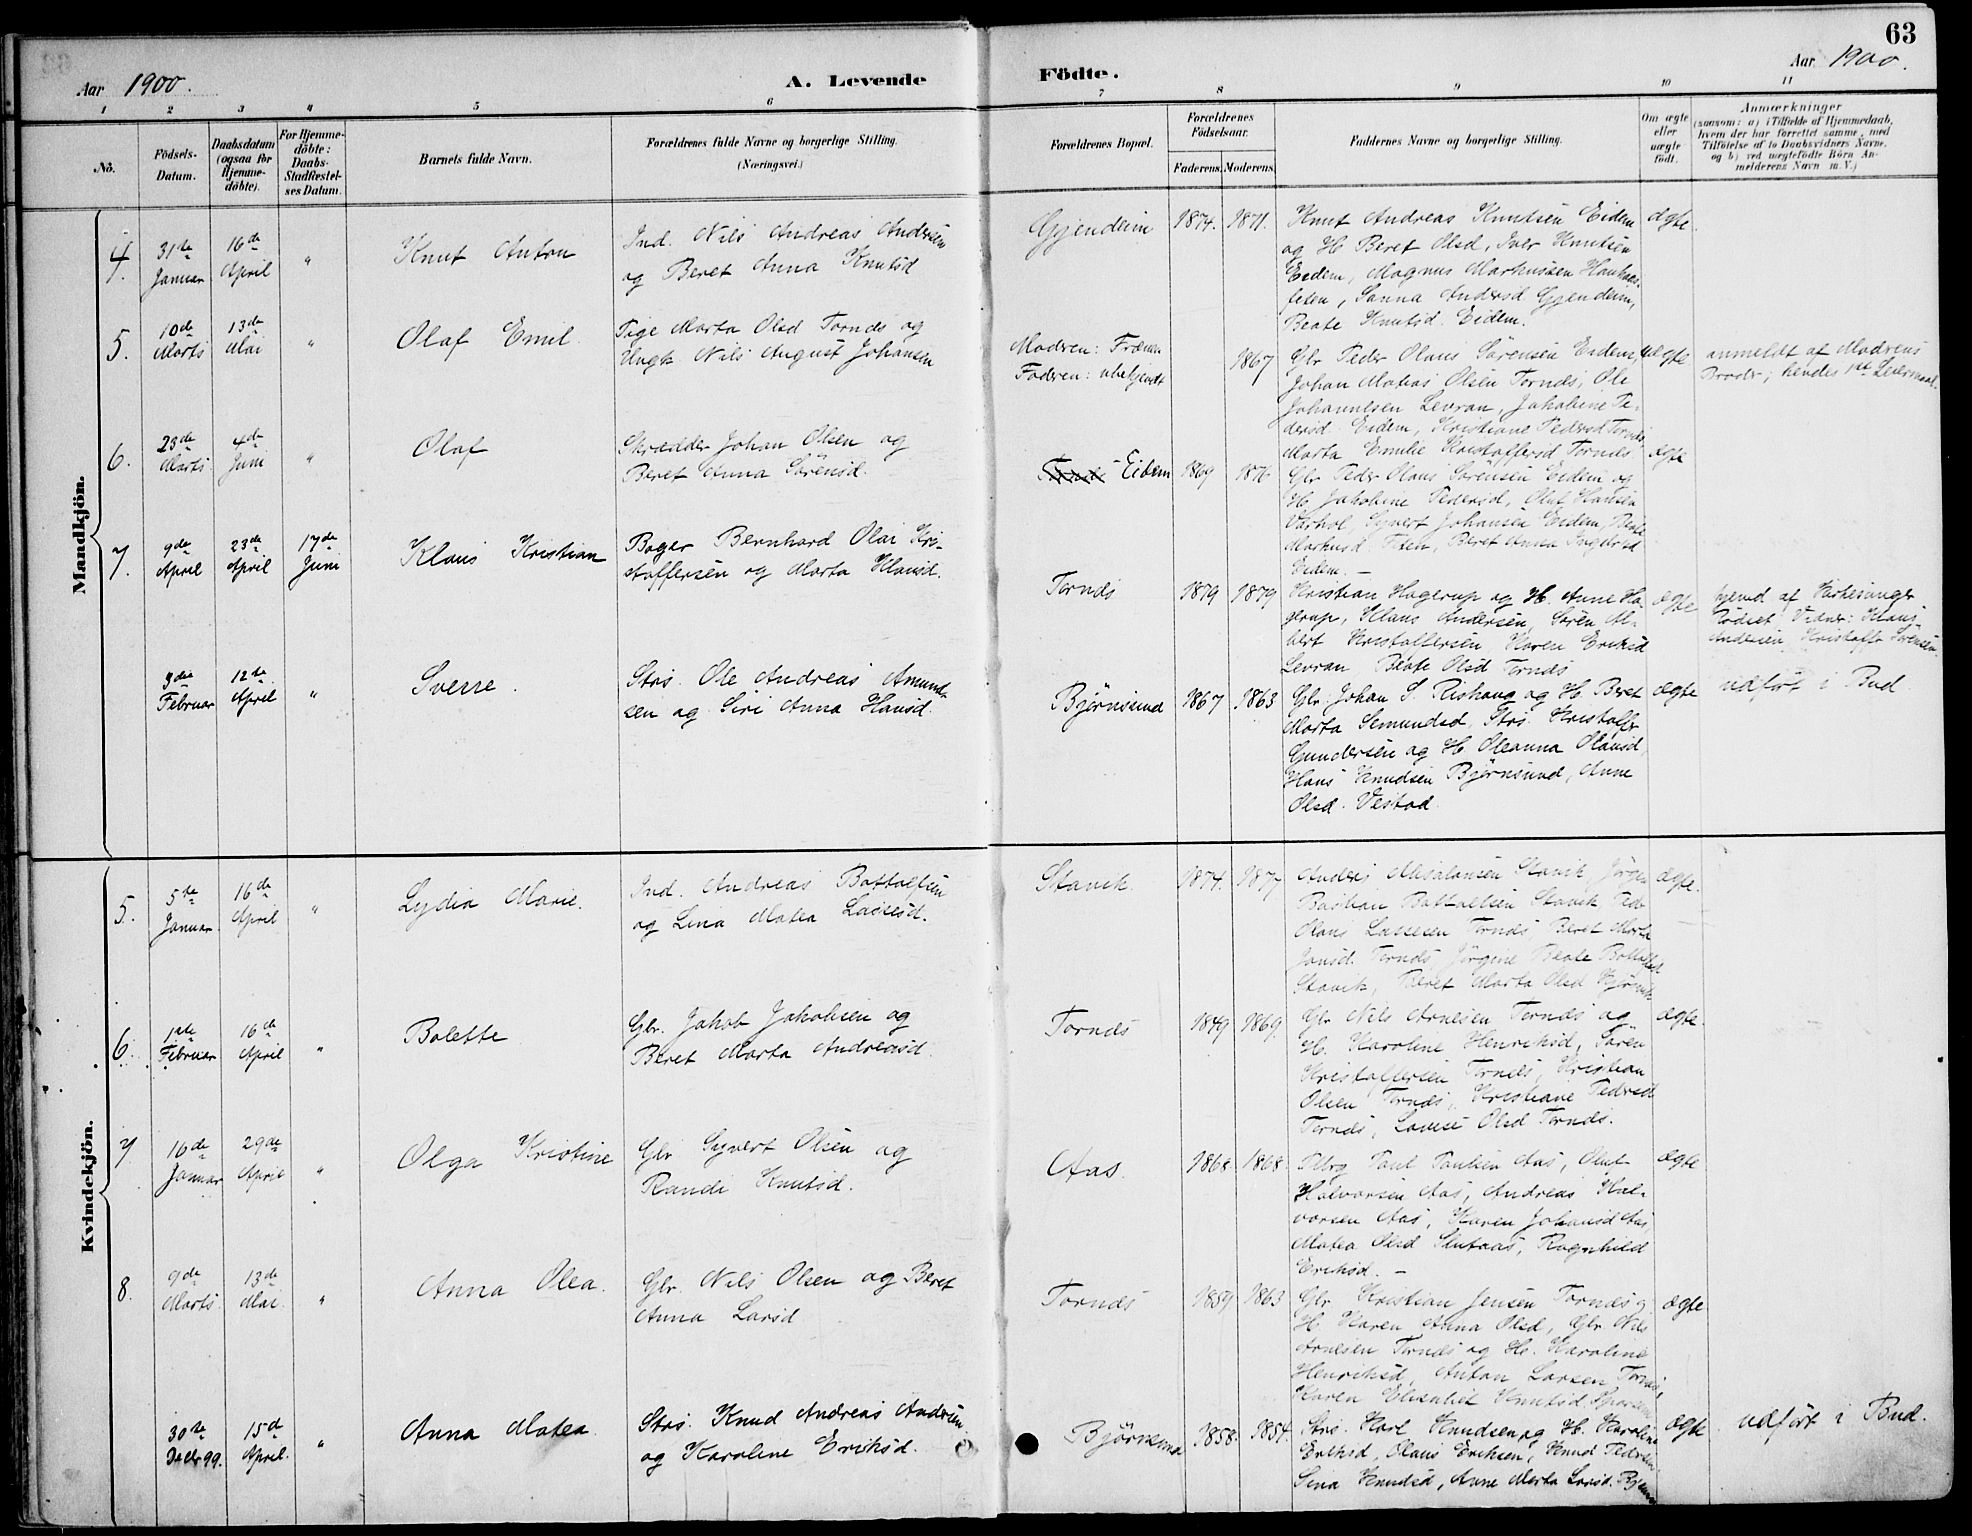 63
Aar 1900.
A. Levende
Födte.
Aar 1900.
1 2 3 4 5 6 7 8 9 10 11
No.
Födsels-
Datum.
Daabsdatum
(ogsaa for
Hjemme-
döbte).
For Hjemme-
döbte:
Daabs-
Stadfæstel-
ses Datum.
Barnets fulde Navn.
Forældrenes fulde Navne og borgerlige Stilling.
(Næringsvei.)
Forældrenes Bopæl.
Forældrenes
Födselsaar.
Faderens. Moderens.
Faddernes Navne og borgerlige Stilling.
Om ægte
eller
uægte
födt.
Anmærkninger
(saasom: a) i Tilfælde af Hjemmedaab,
hvem der har forrettet samme, med
Tilföielse af to Daabsvidners Navne.
og b) ved uægtefödte Börn An-
melderens Navn m. V.)
Mandkjön.
4.
31te
Januar
16de
April
"
Knut Anton
Ind. Nils Andreas Andersen
og Beret Anna Knutsd
Gjendem
1874.
1871.
Knut Andreas Knutsen Eidem
og H. Beret Olsd, Iver Knutsen
Eidem, Magnus Markussen Haukaas-
feten, Sanna Andersd Gjendem,
Beate Knutsd. Eidem.
ægte
5.
10de
Marts
13de
Mai
"
Olaf Emil
Pige Marta Olsd Tornes og
Ungk Nils August Johansen
Modren: Frænen
Faderen: ubekjendt
1867
Gbr Peder Olaus Sörensen Eidem,
Johan Matias Olsen Tornes, Ole
Johannesen Levran, Jakobine Pe-
dersd Eidem, Kristiane Pedersd Tornes
Marta Emilie Kristoffersd Tornes
uægte
anmeldt af Modrens
Broder; hendes 1ste Leiermaal.
6.
23de
Marts
4de
Juni
"
Olaf
Skrædder Johan Olsen og
Beret Anna Sörensd.
Eidem
1869
1876
Gbr Peder Olaus Sörensen Eidem og
H. Jakobine Pedersd, Oluf Hansen
Varhol, Syvert Johansen Eidem, Beate
Markusd Feten, Beret Anna Ingebrsd
Eidem. —
ægte
7.
9de
April
23de
April
17de
Juni
Klaus Kristian
Bager Bernhard Olai Kri-
stoffersen og Marta Klausd.
Tornes
1879
1879
Kristian Hagerup og H. Anne Ha-
gerup, Klaus Andersen, Sören Al-
bert Kristoffersen, Karen Eriksd
Levran Beate Olsd Tornes
ægte
hjemd af Kirkesanger
Rödset Vidner: Klaus
Andersen, Kristoffer Sörensen.
3die
Februar
12te
April
"
Sverre.
Strs. Ole Andreas Amund-
sen og Siri Anna Hansd.
Björnsund
1867
1863
Gbr. Johan S. Rishaug og H. Beret
Marta Semundsd, Strs. Kristoffer
Gundersen og H. Oleanna Olausd,
Hans Knudsen Björnsund, Anne
Olsd. Vestad
ægte
udfört i Bud
Kvindekjön.
5.
5te
Januar
16de
April
"
Lydia Marie.
Ind. Andreas Bottolfsen
og Lina Matea Lassesd.
Stavik.
1874.
1877
Anders Absalonsen Stavik Jörgen
Bastian Bottolfsen Stavik Peder
Olaus Lassesen Tornes, Beret Marta
Jansd. Tornes, Jörgine Beate Bottolfsd
Stavik, Beret Marta Olsd
ægte.
6.
1ste
Februar
16de
April
"
Bolette
Gbr. Jakob Jakobsen og
Beret Marta Andreasd.
Tornes
1849
1869.
Gbr Nils Arnesen Tornes og
H. Karoline Henriksd, Sören
Kristoffersen Tornes, Kristian
Olsen Tornes, Kristiane Pedersd
Tornes, Lovise Olsd Tornes.
ægte.
7
16de
Januar
29de
April
"
Olga Kristine
Gbr Syvert Olsen og
Randi Knutsd.
Aas.
1868.
1868.
Paul Paulsen Aas, Oluf
Halvorsen Aas, Andreas Hal-
vorsen Aas, Karen Johansd Aas,
Matea Olsd Slutaas, Ragnhild
Eriksd. —
ægte
8.
9de
Marts
13de
Mai
"
Anna Olea.
Gbr. Nils Olsen og Beret
Anna Larsd
Tornes
1859
1863
Gbr Kristian Jensen Tornes og
H. Karen Anna Olsd, Gbr. Nils
Arnesen Tornes og H. Karoline
Henriksd, Anton Larsen Tornes,
Karen Elisabet Knutsd
ægte
30te
Decbr 99.
15de
April.
"
Anna Matea
Strs. Knud Andreas Andersen
og Karoline Eriksd.
Björnsund
1858.
1854.
Strs. Karl Knudsen og H. Karoline
Eriksd, Olaus Eriksen, Knud Pedersen
Sina Knudsd, Anne Marta Larsd. Björnsund
ægte
udfört i Bud.